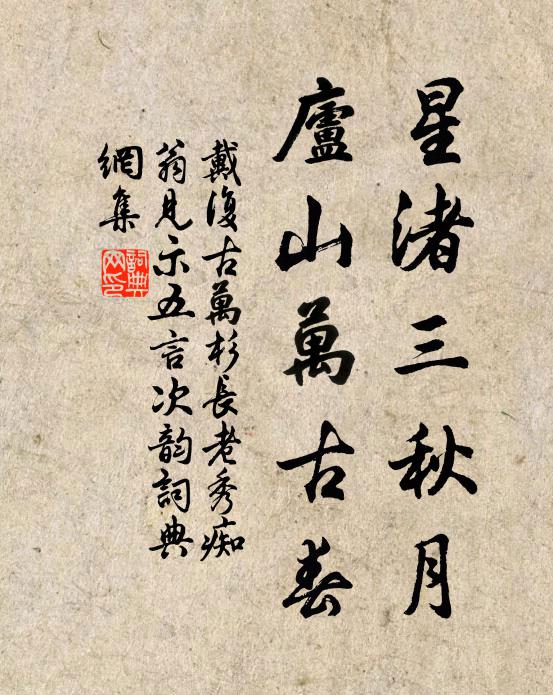 星渚三秋月
廬山萬古春
戴復古萬杉長老秀痴
翁見示五言次韵詞典
網集
詞典
网印